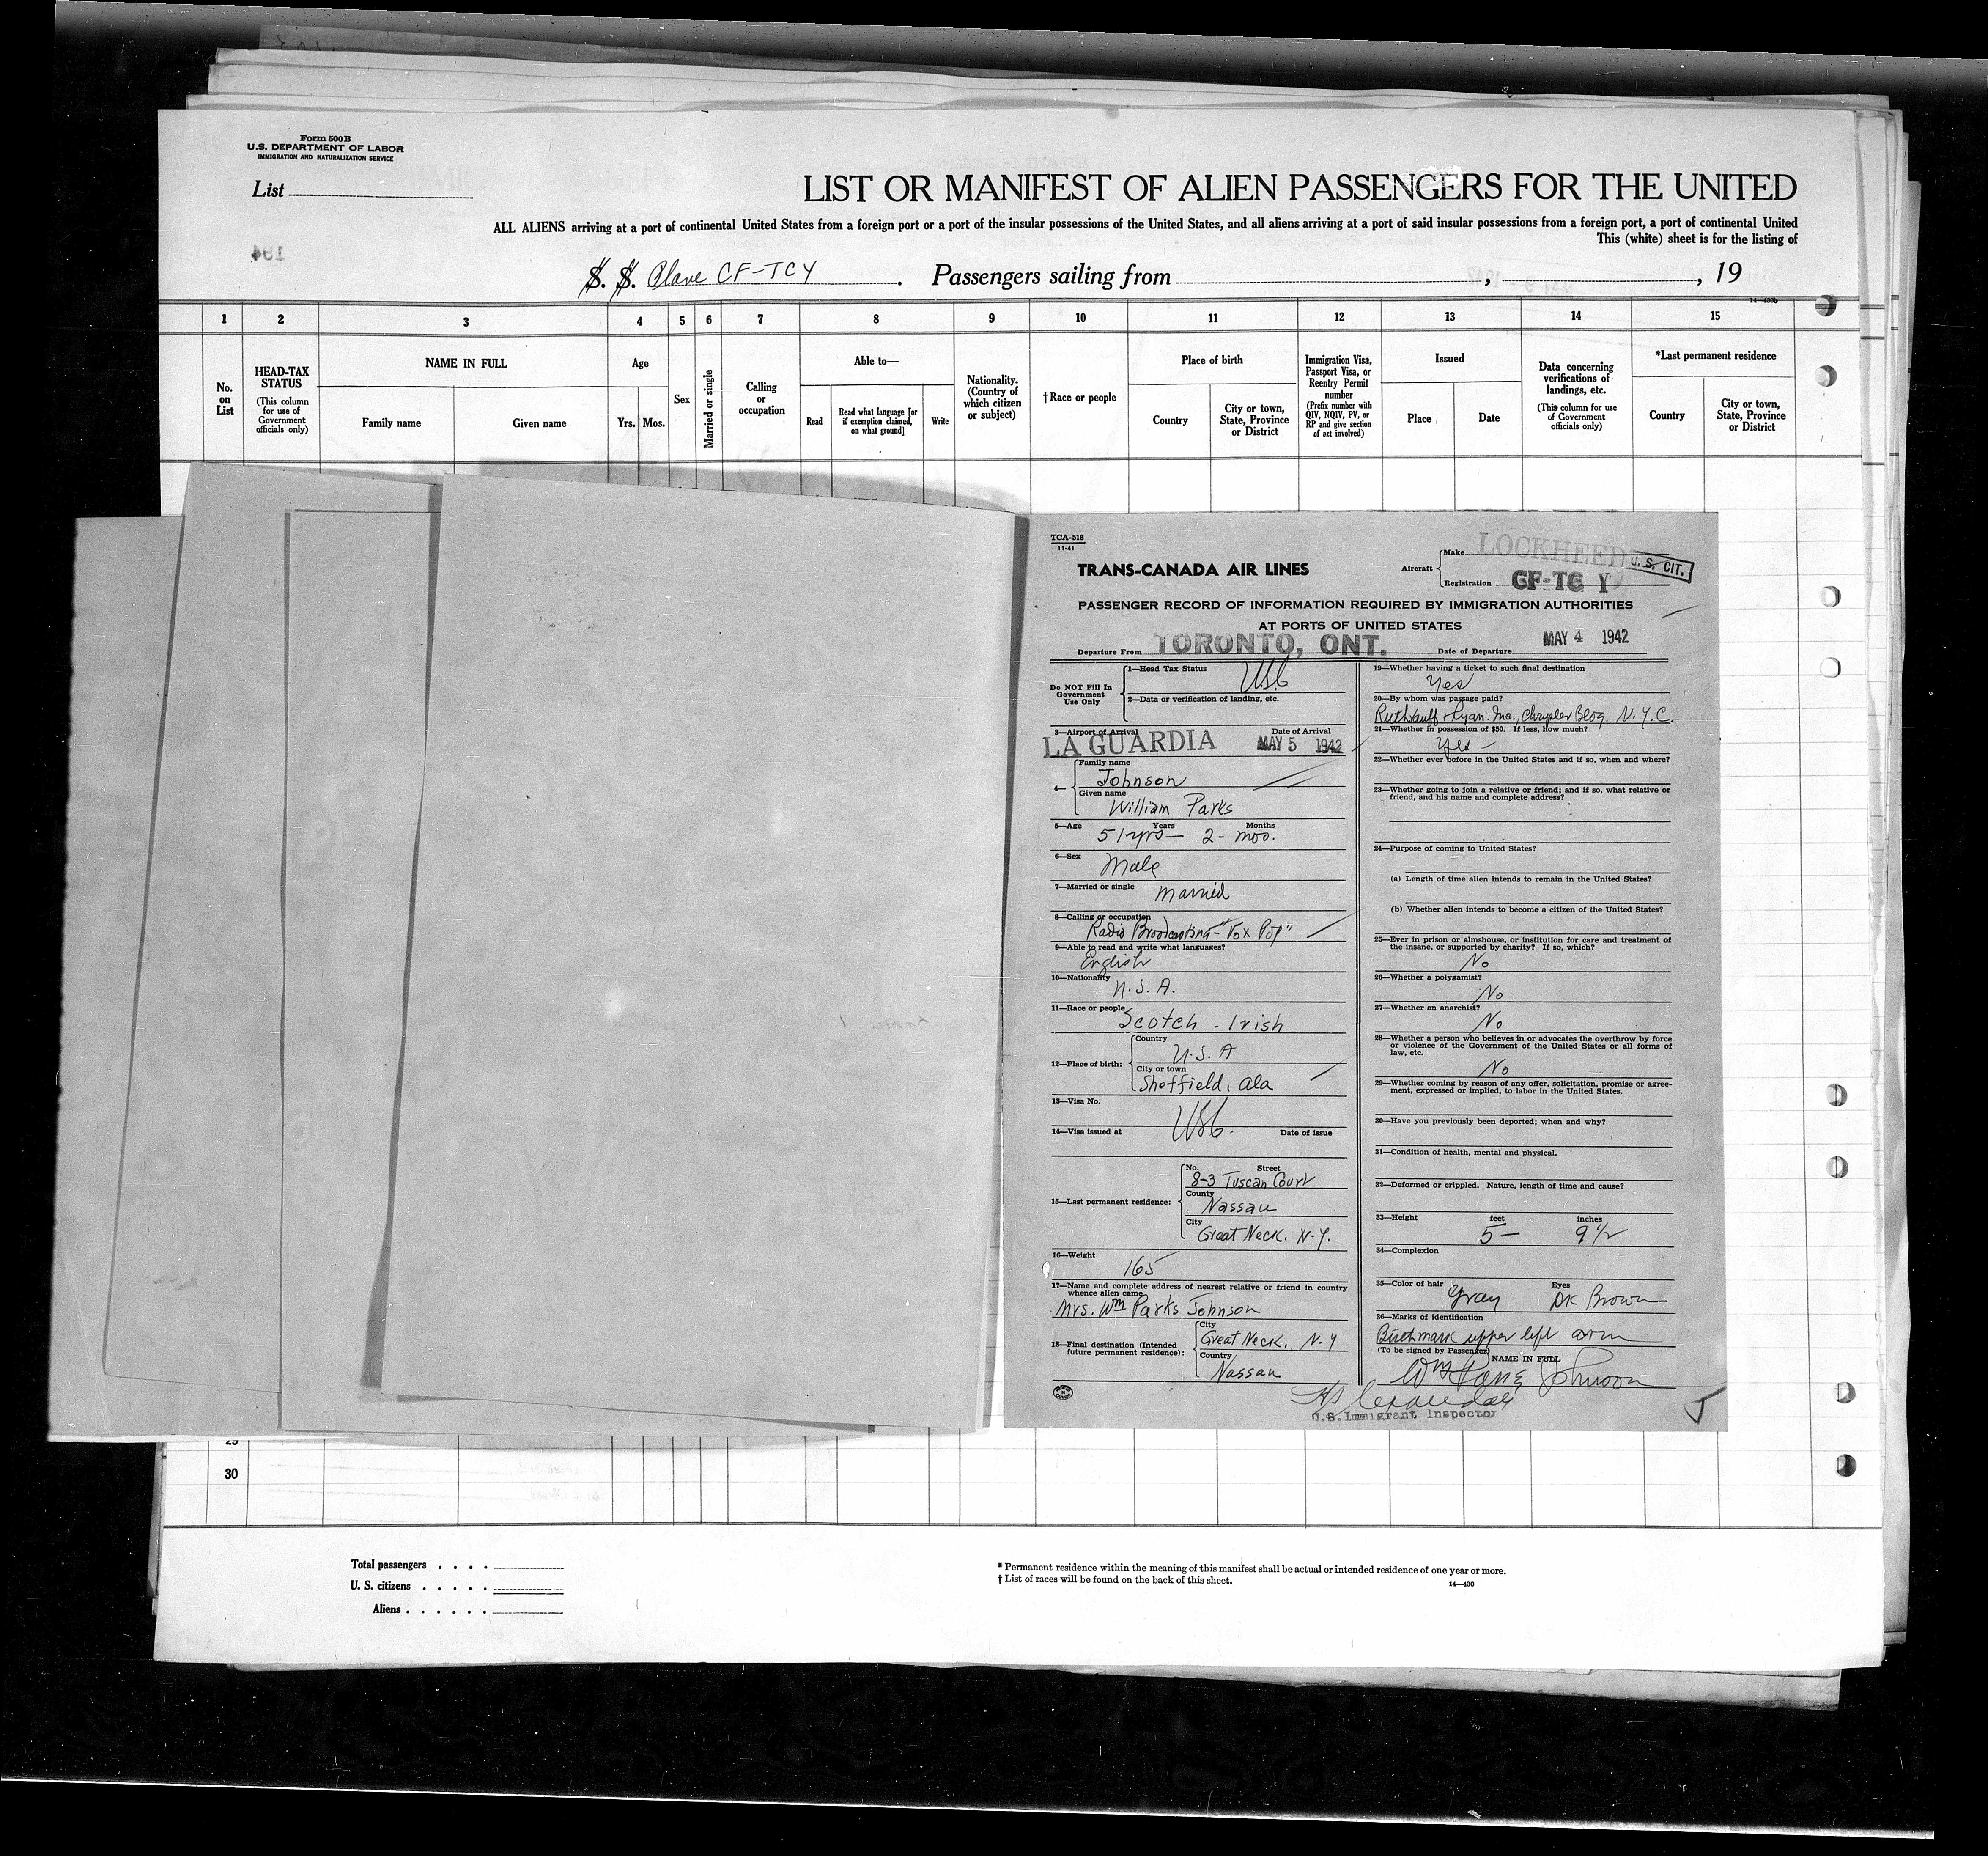 Form 500B
U.S. DEPARTMENT OF LABOR
IMMIGRATION AND NATURALIZATION SERVICE
List
LIST OR MANIFEST OF ALIEN PASSENGERS FOR THE UNITED
ALL ALIENS arriving at a port of continental United States from a foreign port or a port of the insular possessions of the United States, and all aliens arriving at a port of said insular possessions from a foreign port, a port of continental United
This (white) sheet is for the listing of
194
S. S. Plane CF-TCY. Passengers sailing from , , 19
14—430b
1 2 3 4 5 6 7 8 9 10 11 12 13 14 15
No. on List
HEAD-TAX STATUS
(This column for use of Government officials only)
NAME IN FULL
Family name
Given name
Age
Yrs. Mos.
Sex
Married or single
Calling or occupation
Able to—
Read
Read what language [or if exemption claimed, on what ground]
Write
Nationality. (Country of which citizen or subject)
†Race or people
Place of birth
Country
City or town, State, Province or District
Immigration Visa, Passport Visa, or Reentry Permit number
(Prefix number with QIV, NQIV, PV, or RP and give section of act involved)
Issued
Place
Date
Data concerning verifications of landings, etc.
(This column for use of Government officials only)
*Last permanent residence
Country
City or town, State, Province or District
TCA-518
11-41
TRANS-CANADA AIR LINES
Aircraft
Make LOCKHEED
U.S. CIT.
Registration CF-TC Y
PASSENGER RECORD OF INFORMATION REQUIRED BY IMMIGRATION AUTHORITIES
AT PORTS OF UNITED STATES
Departure From TORONTO, ONT. Date of Departure MAY 4 1942
Do NOT Fill In Government Use Only
1—Head Tax Status USC
2—Data or verification of landing, etc.
3—Airport of Arrival Date of Arrival
LA GUARDIA MAY 5 1942
4—
Family name
Johnson
Given name
William Parks
5—Age Years Months
51 yrs— 2- mos.
6—Sex
Male
7—Married or single
Married
8—Calling or occupation
Radio Broadcasting-"Vox Pop"
9—Able to read and write what languages?
English
10—Nationality
U.S.A.
11—Race or people
Scotch - Irish
12—Place of birth:
Country
U.S.A
City or town
Sheffield, Ala
13—Visa No.
USC.
14—Visa issued at Date of issue
15—Last permanent residence:
No. Street
8-3 Tuscan Court
County
Nassau
City
Great Neck. N.Y.
16—Weight
165
17—Name and complete address of nearest relative or friend in country whence alien came
Mrs. Wm Parks Johnson
18—Final destination (Intended future permanent residence):
City
Great Neck. N.Y
Country
Nassau
19—Whether having a ticket to such final destination
Yes
20—By whom was passage paid?
Ruthrauff & Ryan. Inc., Chrysler Bldg. N.Y.C.
21—Whether in possession of $50. If less, how much?
Yes —
22—Whether ever before in the United States and if so, when and where?
23—Whether going to join a relative or friend; and if so, what relative or friend, and his name and complete address?
24—Purpose of coming to United States?
(a) Length of time alien intends to remain in the United States?
(b) Whether alien intends to become a citizen of the United States?
25—Ever in prison or almshouse, or institution for care and treatment of the insane, or supported by charity? If so, which?
No
26—Whether a polygamist?
No
27—Whether an anarchist?
No
28—Whether a person who believes in or advocates the overthrow by force or violence of the Government of the United States or all forms of law, etc.
No
29—Whether coming by reason of any offer, solicitation, promise or agreement, expressed or implied, to labor in the United States.
30—Have you previously been deported; when and why?
31—Condition of health, mental and physical.
32—Deformed or crippled. Nature, length of time and cause?
33—Height feet inches
5— 9 1/2
34—Complexion
35—Color of hair Eyes
Gray Dk Brown
36—Marks of identification
Birthmark upper left arm
(To be signed by Passenger)
NAME IN FULL
Wm Parks Johnson
U.S. Immigrant Inspector
29
30
Total passengers . . . .
U. S. citizens . . . . .
Aliens . . . . . .
* Permanent residence within the meaning of this manifest shall be actual or intended residence of one year or more.
† List of races will be found on the back of this sheet.
14—430